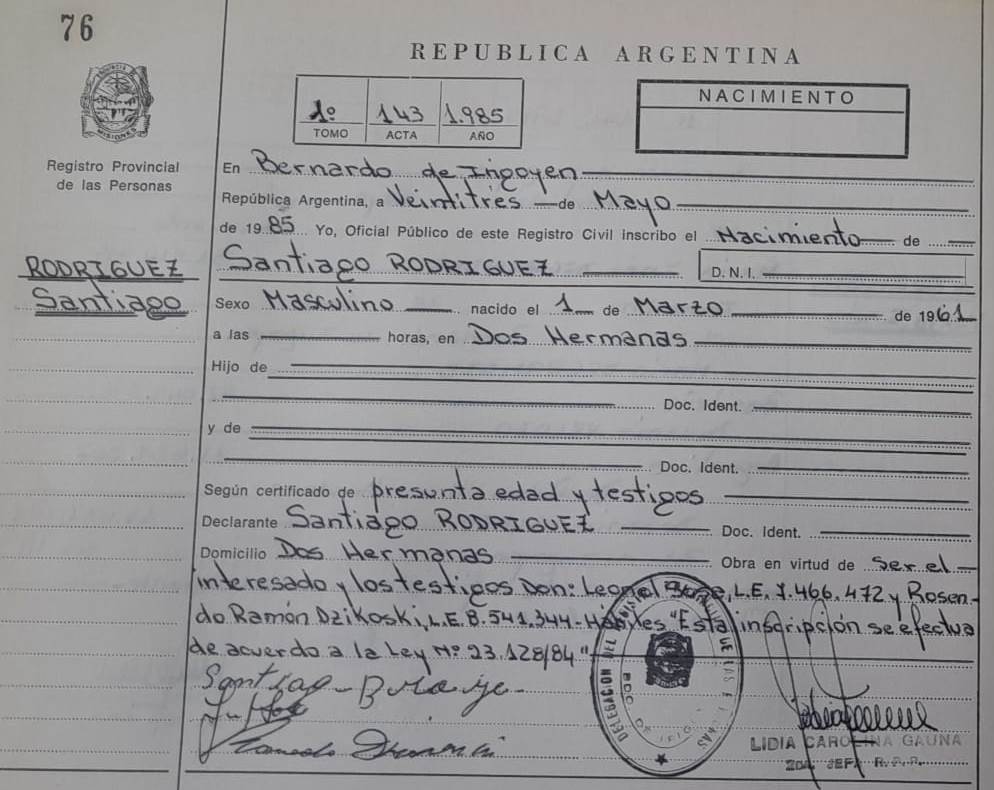 76
REPUBLICA ARGENTINA
1º 143 1.985
TOMO ACTA AÑO
NACIMIENTO
MISIONES
Registro Provincial
de las Personas
RODRIGUEZ
Santiago
En Bernardo de Irigoyen
República Argentina, a Veintitres de Mayo
de 1985 Yo, Oficial Público de este Registro Civil inscribo el Nacimiento de
Santiago RODRIGUEZ D.N.I.
Sexo Masculino nacido el 1 de Marzo de 1961
a las horas, en Dos Hermanas
Hijo de
Doc. Ident.
y de
Doc. Ident.
Según certificado de presunta edad y testigos
Declarante Santiago RODRIGUEZ Doc. Ident.
Domicilio Dos Hermanas Obra en virtud de Ser el
interesado y los testigos Don: Leonel L.E. 7.466.472 y Rosen-
do Ramón Dzikoski, L.E. 8.541.344- Hábiles "Esta inscripción se efectua
de acuerdo a la Ley Nº 23.128/84"
DELEGACION DEL
LIDIA CAROLINA GAUNA
2DA. JEFA R.P.P.